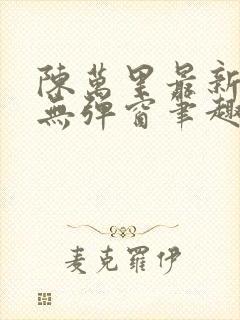 陳萬里最新
無彈窗筆趣
麦克羅伊